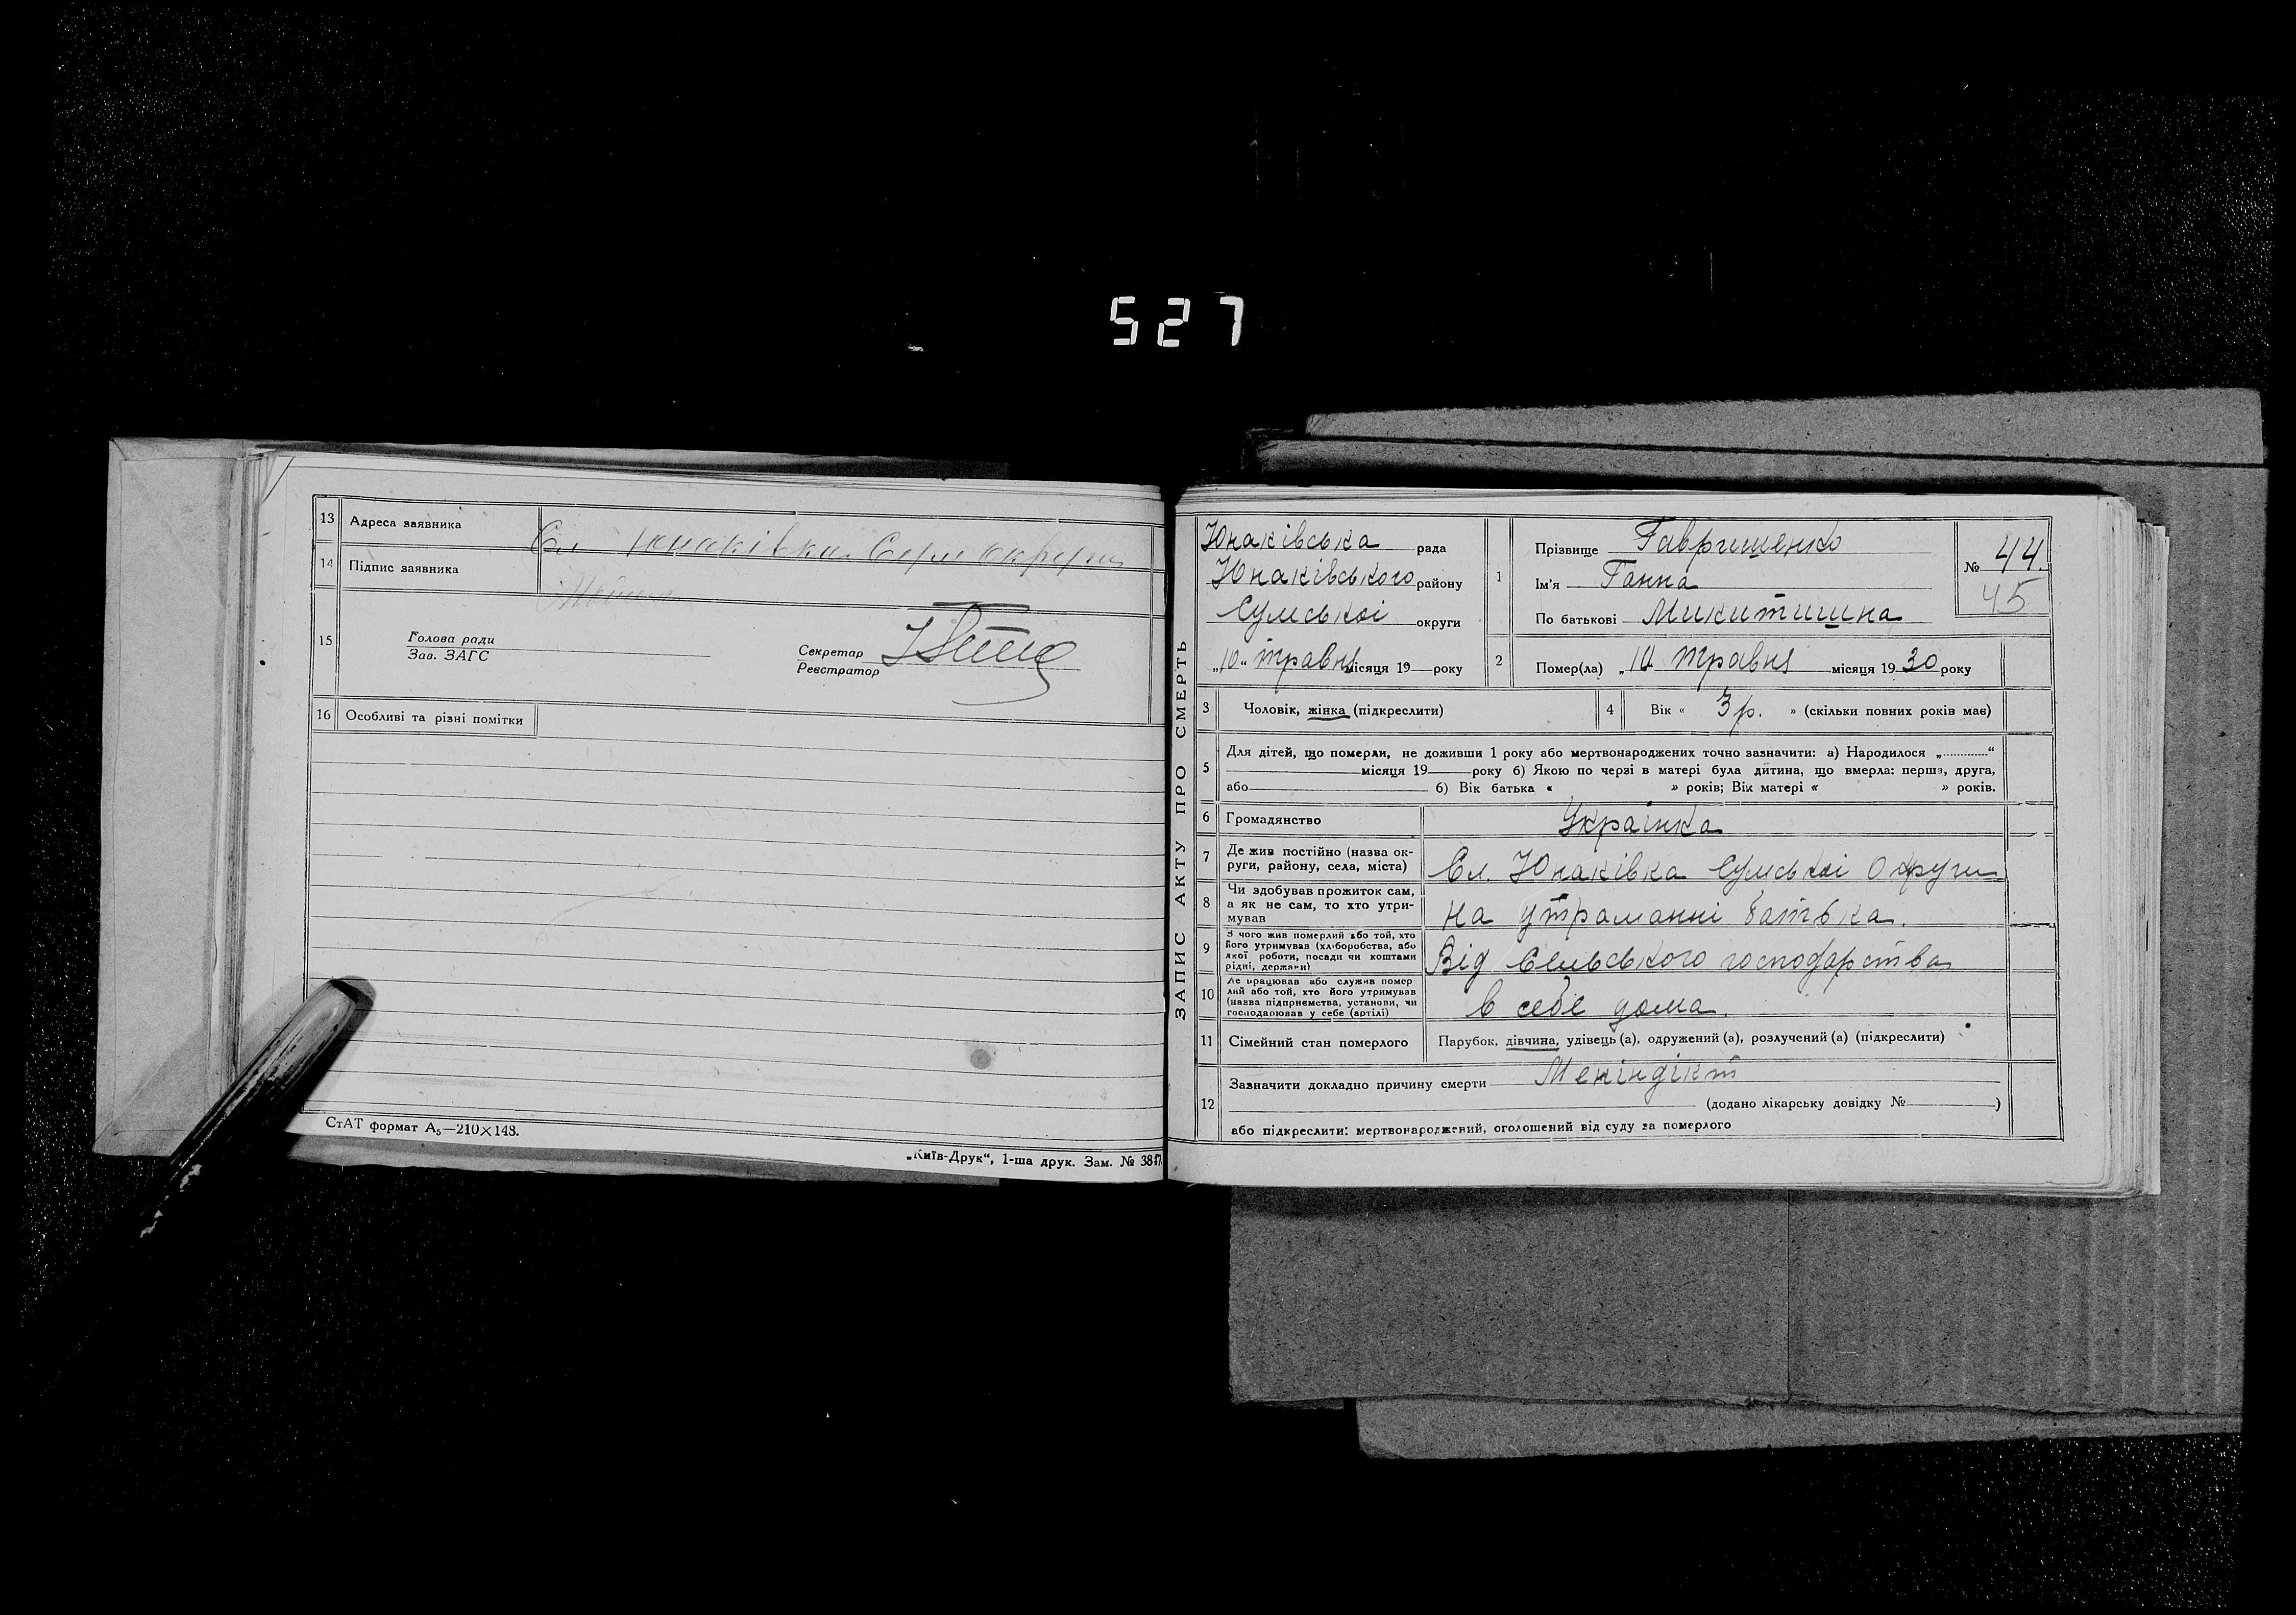 527
13 Адреса заявника Сл Юнаківка Сум округи
14 Підпис заявника
15 Голова ради
Зав. ЗАГС
Секретар
Реєстратор
16 Особливі та різні помітки
СтАТ формат А₅—210×148.
„Київ-Друк“, 1-ша друк. Зам. №
ЗАПИС АКТУ ПРО СМЕРТЬ
Юнаківська рада
Юнаківського району
Сумської округи
„10“ травня місяця 19 року
1 Прізвище Гавришенко
Ім'я Ганна
По батькові Микитишна
№ 44.
45
2 Помер(ла) „10 травня місяця 1930 року
3 Чоловік, жінка (підкреслити)
4 Вік « 3 р. » (скільки повних років має)
5 Для дітей, що померли, не доживши 1 року або мертвонароджених точно зазначити: а) Народилося „ “
місяця 19 року б) Якою по черзі в матері була дитина, що вмерла: перша, друга,
або б) Вік батька « » років; Вік матері « » років.
6 Громадянство Українка
7 Де жив постійно (назва ок-
руги, району, села, міста) Сл. Юнаківка Сумської Округи
8 Чи здобував прожиток сам,
а як не сам, то хто утри-
мував на утраманні батька.
9 З чого жив померлий або той, хто
його утримував (хліборобства, або
якої роботи, посади чи коштами
рідні, держави) Від Сельського господарства
10 Де працював або служив помер
лий або той, хто його утримував
(назва підприємства, установи, чи
господарював у себе (артілі) в себе дома.
11 Сімейний стан померлого Парубок, дівчина, удівець (а), одружений (а), розлучений (а) (підкреслити)
12 Зазначити докладно причину смерти Менінгікт
(додано лікарську довідку № )
або підкреслити: мертвонароджений, оголошений від суду за померлого